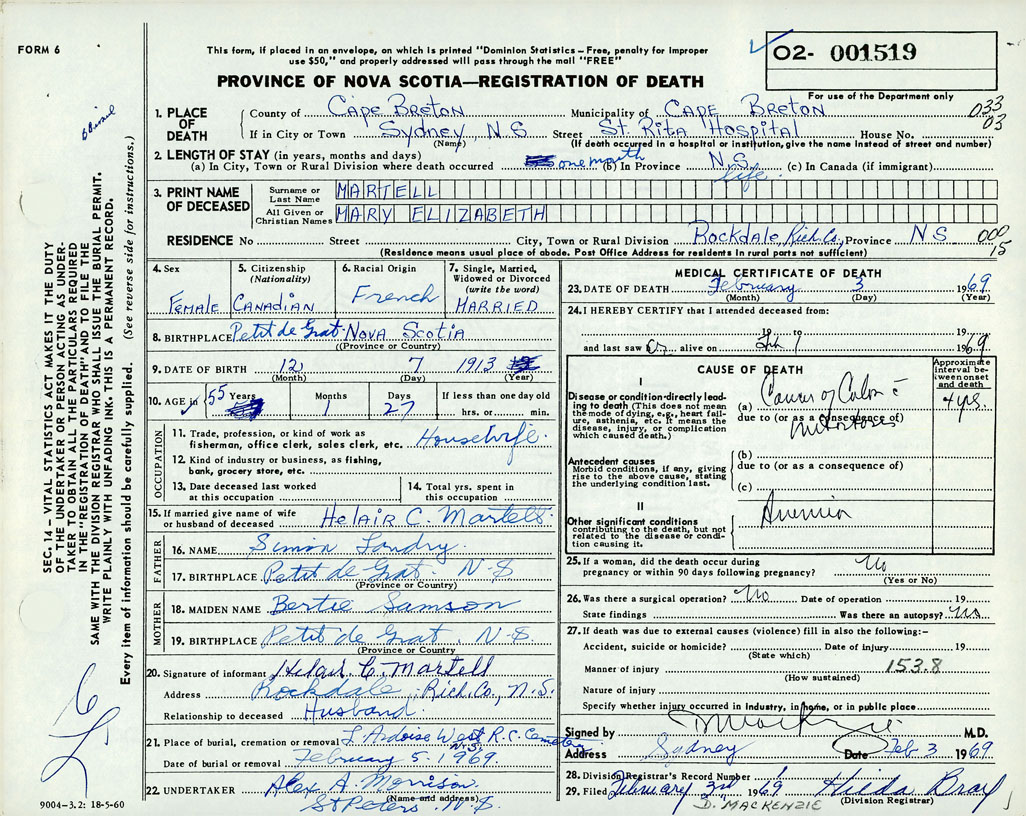 FORM 6
This form, if placed in an envelope, on which is printed "Dominion Statistics – Free, penalty for improper
use $50," and properly addressed will pass through the mail "FREE"
PROVINCE OF NOVA SCOTIA—REGISTRATION OF DEATH
02- 001519
For use of the Department only
033
03
1. PLACE OF DEATH
County of Cape Breton Municipality of Cape Breton
If in City or Town Sydney, N.S. Street St. Rita Hospital House No.
(Name) (If death occurred in a hospital or institution, give the name instead of street and number)
2. LENGTH OF STAY (in years, months and days)
(a) In City, Town or Rural Division where death occurred one month (b) In Province N.S. life (c) In Canada (if immigrant)
3. PRINT NAME OF DECEASED
Surname or Last Name MARTELL
All Given or Christian Names MARY ELIZABETH
RESIDENCE No Street City, Town or Rural Division Rockdale, Rich. Co., Province N S
000
15
(Residence means usual place of abode. Post Office Address for residents in rural parts not sufficient)
4. Sex
Female
5. Citizenship (Nationality)
Canadian
6. Racial Origin
French
7. Single, Married, Widowed or Divorced (write the word)
Married
8. BIRTHPLACE Petit de Grat Nova Scotia
(Province or Country)
9. DATE OF BIRTH 12 7 1913
(Month) (Day) (Year)
10. AGE in 55 Years Months 1 Days 27 If less than one day old
hrs. or min.
OCCUPATION
11. Trade, profession, or kind of work as fisherman, office clerk, sales clerk, etc. Housewife
12. Kind of industry or business, as fishing, bank, grocery store, etc.
13. Date deceased last worked at this occupation
14. Total yrs. spent in this occupation
15. If married give name of wife or husband of deceased Helair C. Martell
FATHER
16. NAME Simon Landry
17. BIRTHPLACE Petit de Grat N.S
(Province or Country)
MOTHER
18. MAIDEN NAME Bertie Samson
19. BIRTHPLACE Petit de Grat, N.S.
(Province or Country
20. Signature of informant Helair C. Martell
Address Rockdale, Rich. Co., N.S.
Relationship to deceased Husband
21. Place of burial, cremation or removal L'Ardoise West R.C. Cemetery
N.S.
Date of burial or removal February 5, 1969.
22. UNDERTAKER Alex A. Morrison
(Name and address)
St Peters, N.S.
9004-3.2: 18-5-60
MEDICAL CERTIFICATE OF DEATH
23. DATE OF DEATH February 3 1969
(Month) (Day) (Year)
24. I HEREBY CERTIFY that I attended deceased from:
19 to 19
and last saw alive on Feb 1 1969
CAUSE OF DEATH
Approximate interval between onset and death
I
Disease or condition directly leading to death (This does not mean the mode of dying, e.g., heart failure, asthenia, etc. It means the disease, injury, or complication which caused death.)
(a) Cancer of Colon c 4 yrs
due to (or as a consequence of)
metastases
Antecedent causes
Morbid conditions, if any, giving rise to the above cause, stating the underlying condition last.
(b)
due to (or as a consequence of)
(c)
II
Other significant conditions contributing to the death, but not related to the disease or condition causing it.
Anemia
25. If a woman, did the death occur during pregnancy or within 90 days following pregnancy? No
(Yes or No)
26. Was there a surgical operation? No Date of operation 19
State findings Was there an autopsy? No
27. If death was due to external causes (violence) fill in also the following:–
Accident, suicide or homicide? Date of injury 19
(State which)
Manner of injury 153.8
(How sustained)
Nature of injury
Specify whether injury occurred in industry, in home, or in public place
Signed by D MacKenzie M.D.
Address Sydney Date Feb 3 1969
28. Division Registrar's Record Number 1
29. Filed February 3rd 1969 Hilda Bray
(Division Registrar)
D. MACKENZIE
SEC. 14 – VITAL STATISTICS ACT MAKES IT THE DUTY
OF THE UNDERTAKER OR PERSON ACTING AS UNDER-
TAKER TO OBTAIN ALL THE PARTICULARS REQUIRED
IN THE "REGISTRATION OF DEATH" AND TO FILE THE
SAME WITH THE DIVISION REGISTRAR WHO SHALL ISSUE THE BURIAL PERMIT.
WRITE PLAINLY WITH UNFADING INK. THIS IS A PERMANENT RECORD.
Every item of information should be carefully supplied. (See reverse side for instructions.)